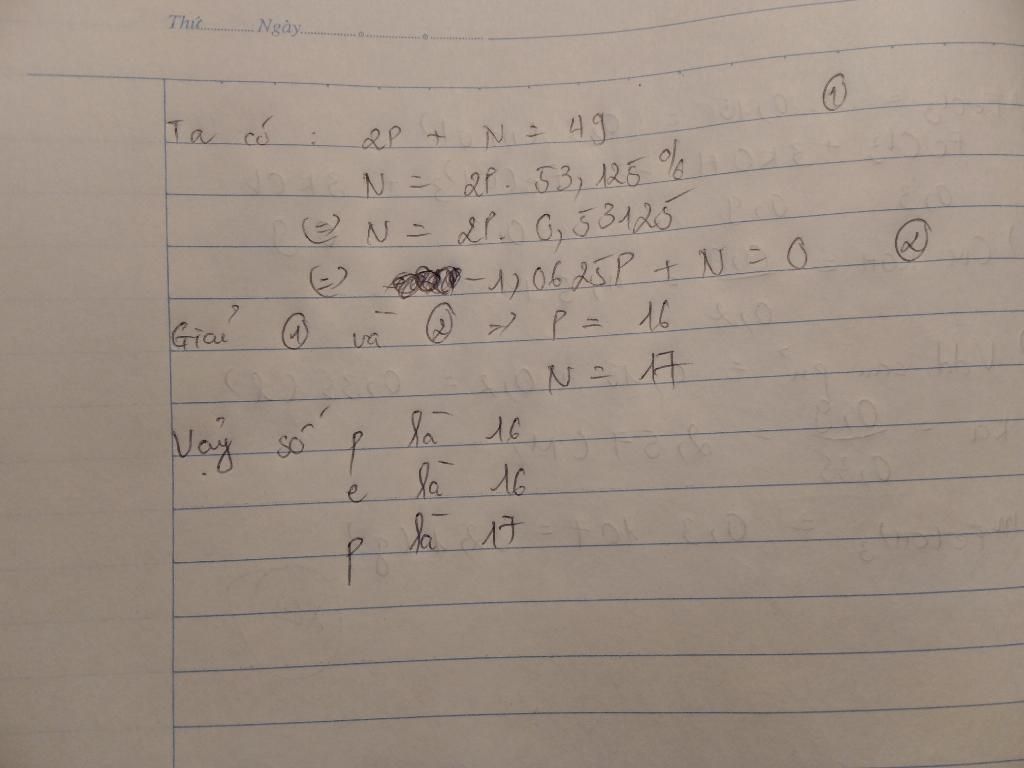 Thứ............Ngày..............................
①
Ta có : 2P + N = 49
N = 2P. 53,125%
(=) N = 2P. 0,53125
(=) -1,0625P + N = 0 ②
Giải ① và ② => P = 16
N = 17
Vậy số p là 16
e là 16
p là 17